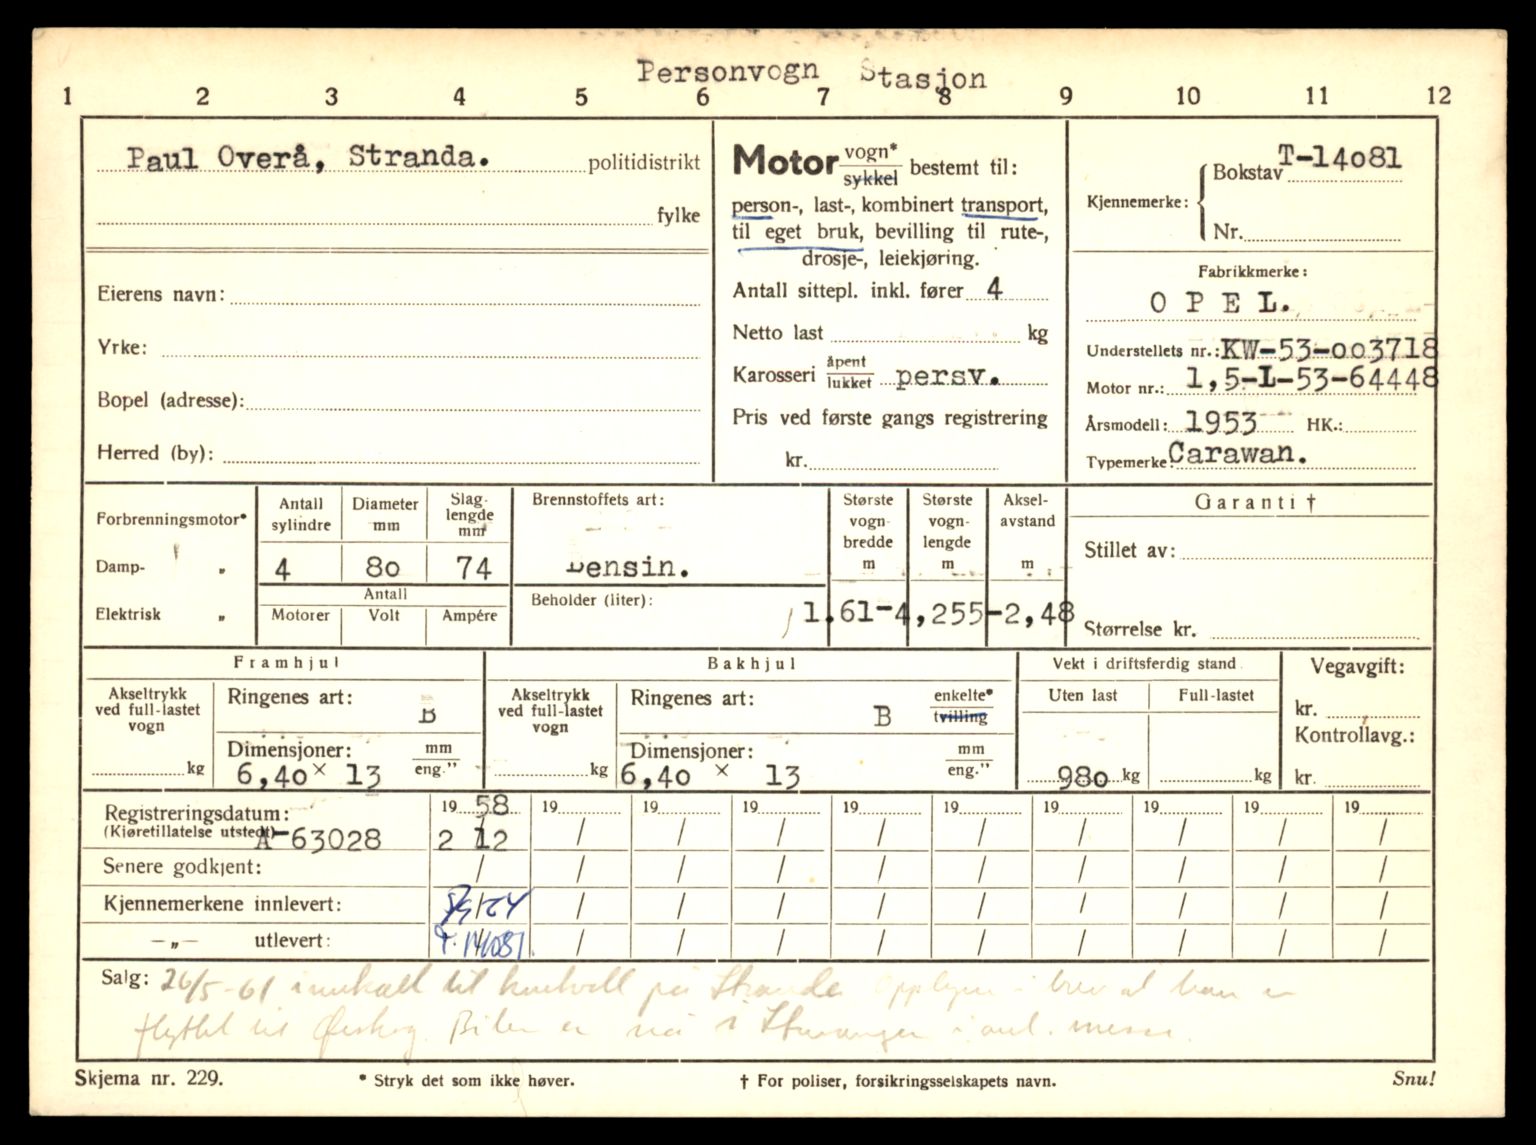 Personvogn Stasjon
1 2 3 4 5 6 7 8 9 10 11 12
Paul Overå, Stranda. politidistrikt
fylke
Eierens navn:
Yrke:
Bopel (adresse):
Herred (by):
Motor vogn* sykkel bestemt til:
person-, last-, kombinert transport,
til eget bruk, bevilling til rute-,
drosje-, leiekjøring.
Antall sittepl. inkl. fører 4
Netto last kg
Karosseri åpent lukket persv.
Pris ved første gangs registrering
kr.
Kjennemerke: Bokstav T-14081
Nr.
Fabrikkmerke:
OPEL.
Understellets nr.: KW-53-003718
Motor nr.: 1,5-L-53-64448
Årsmodell: 1953 HK.:
Typemerke: Carawan.
Forbrenningsmotor*
Damp- „
Elektrisk „
Antall sylindre
Diameter mm
Slag-lengde mm
4 80 74
Antall
Motorer Volt Ampére
Brennstoffets art:
Bensin.
Beholder (liter):
Største vogn-bredde m
Største vogn-lengde m
Aksel-avstand m
1.61-4,255-2,48
Garanti †
Stillet av:
Størrelse kr.
Framhjul
Akseltrykk ved full-lastet vogn
kg
Ringenes art:
B
Dimensjoner: mm eng."
6,40 x 13
Bakhjul
Akseltrykk ved full-lastet vogn
kg
Ringenes art: enkelte* tvilling
B
Dimensjoner: mm eng."
6,40 x 13
Vekt i driftsferdig stand
Uten last Full-lastet
980 kg kg
Vegavgift:
kr.
Kontrollavg.:
kr.
Registreringsdatum: 19 58 19 19 19 19 19 19 19 19 19
(Kjøretillatelse utstedt) A-63028 2/12 / / / / / / / / /
Senere godkjent: / / / / / / / / / /
Kjennemerkene innlevert: / / / / / / / / /
—„— utlevert: T-14081. / / / / / / / / /
Salg: 26/5-61 innkalt til kontroll på Stranda opplyser i brev at han er
flyttet til Ørskog. Bilen er nå i Stavanger
Skjema nr. 229.
* Stryk det som ikke høver.
† For poliser, forsikringsselskapets navn.
Snu!